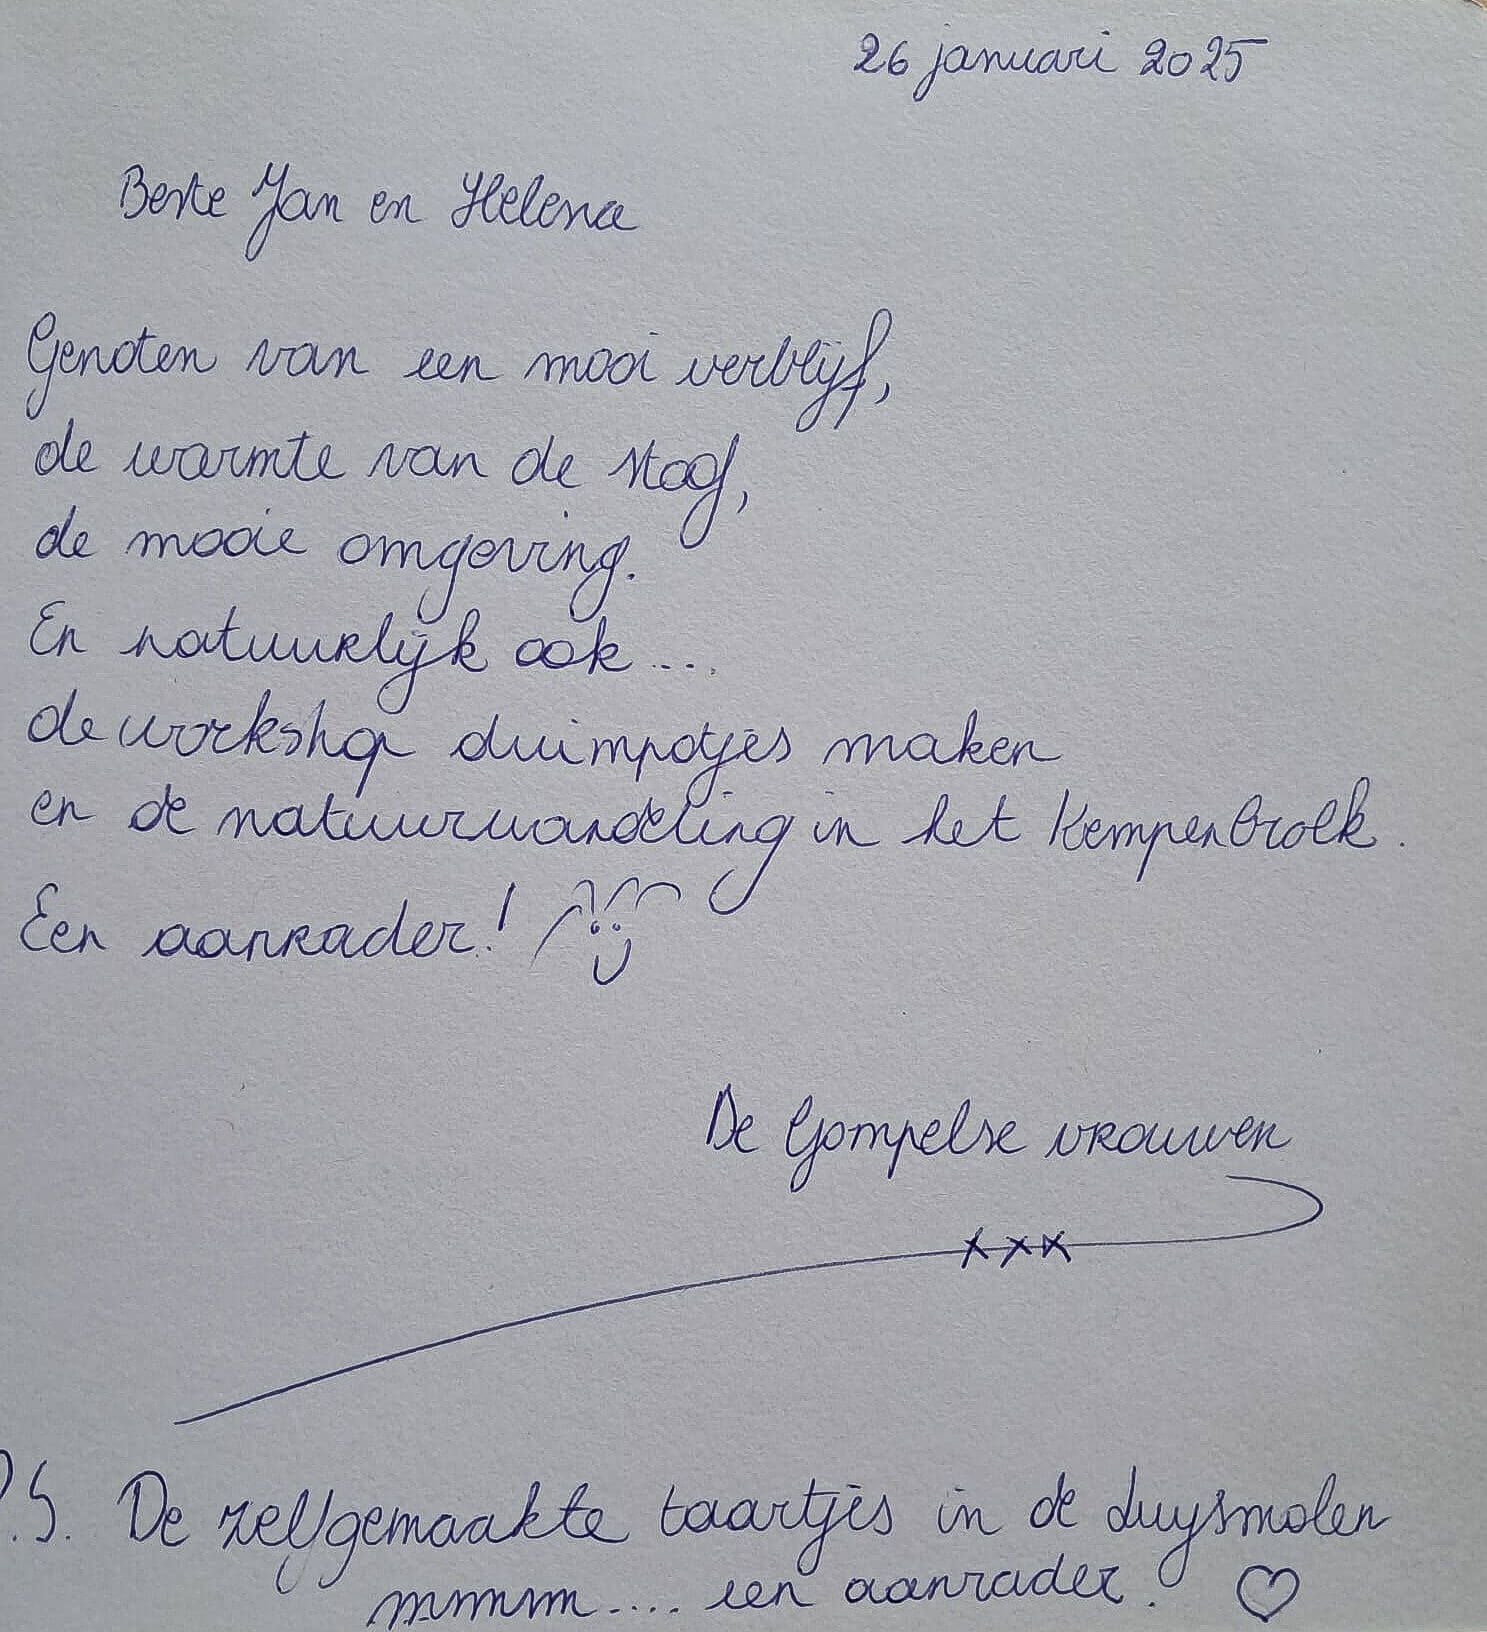 26 januari 2025
Beste Jan en Helena
Genoten van een mooi verblijf,
de warmte van de stoof,
de mooie omgeving.
En natuurlijk ook...
de workshop duimpotjes maken
en de natuurwandeling in het Kempenbroek.
Een aanrader!
De Gompelse vrouwen
xxx
P.S. De zelfgemaakte taartjes in de Luysmolen
mmmm.... een aanrader!